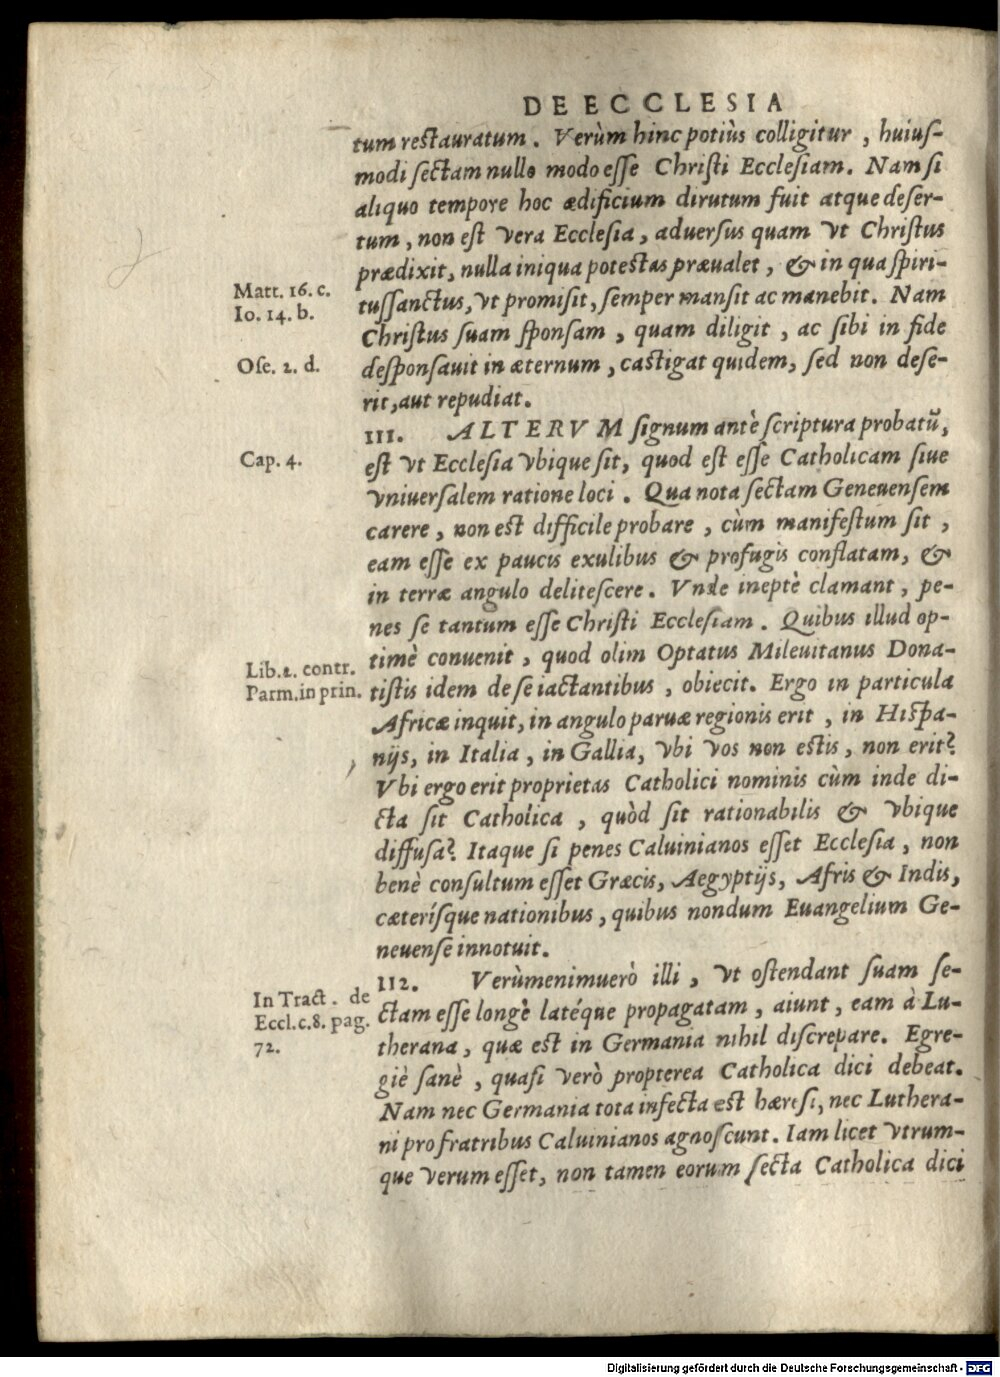 DE ECCLESIA
tum restauratum. Verùm hinc potiùs colligitur, huius-
modi sectam nullo modo esse Christi Ecclesiam. Nam si
aliquo tempore hoc ædificium dirutum fuit atque deser-
tum, non est vera Ecclesia, adversus quam vt Christus
prædixit, nulla iniqua potestas præualet, & in qua spiri-
Matt. 16. c.
tussanctus, vt promisit, semper mansit ac manebit. Nam
Io. 14. b.
Christus suam sponsam, quam diligit, ac sibi in fide
Ose. 2. d.
desponsauit in æternum, castigat quidem, sed non dese-
rit, aut repudiat.
111. ALTERVM signum antè scriptura probatũ,
Cap. 4.
est vt Ecclesia vbique sit, quod est esse Catholicam siue
vniuersalem ratione loci. Qua nota sectam Geneuensem
carere, non est difficile probare, cùm manifestum sit,
eam esse ex paucis exulibus & profugis conflatam, &
in terræ angulo delitescere. Vnde ineptè clamant, pe-
nes se tantum esse Christi Ecclesiam. Quibus illud op-
timè conuenit, quod olim Optatus Mileuitanus Dona-
Lib.2. contr.
Parm.in prin.
tistis idem de se iactantibus, obiecit. Ergo in particula
Africæ inquit, in angulo paruæ regionis erit, in Hispa-
nijs, in Italia, in Gallia, vbi vos non estis, non erit?
Vbi ergo erit proprietas Catholici nominis cùm inde di-
cta sit Catholica, quòd sit rationabilis & vbique
diffusa? Itaque si penes Caluinianos esset Ecclesia, non
benè consultum esset Græcis, Aegyptijs, Afris & Indis,
cæterísque nationibus, quibus nondum Euangelium Ge-
neuense innotuit.
112. Verùmenimuerò illi, vt ostendant suam se-
In Tract. de
Eccl.c.8. pag.
72.
ctam esse longè latéque propagatam, aiunt, eam à Lu-
therana, quæ est in Germania nihil discrepare. Egre-
giè sanè, quasi verò propterea Catholica dici debeat.
Nam nec Germania tota infecta est hæresi, nec Luthera-
ni pro fratribus Caluinianos agnoscunt. Iam licet vtrum-
que verum esset, non tamen eorum secta Catholica dici
Digitalisierung gefördert durch die Deutsche Forschungsgemeinschaft - DFG